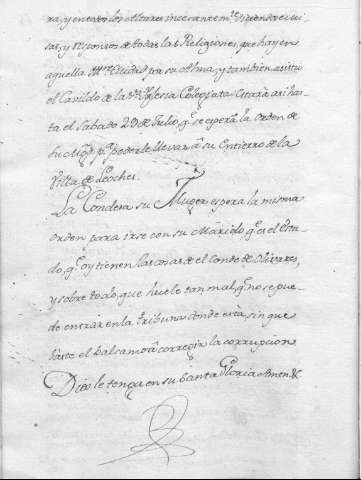 ra, y en todos los Altares incesantem.te diziendo mi-
sas, y responsos de todas las Religiones, que hay en
aquella Ciudad por su Alma, y tambien asistio
el Cavildo de la S.ta Iglesia Colegiata. Estará así has-
ta el Sabado 29 de Julio, q.e se espera la orden de
su Mag.d p.a poderle llevar a su Entierro de la
Villa de Loeches.
La Condesa su Muger espera la misma
orden para irse con su Marido q.e es el Esta-
do, q.e oy tienen las cosas de el Conde de Olivares,
y sobre todo, que huele tan mal, q.e no se pue-
de entrar en la tribuna donde esta, sin que
baste el balsamo a corregir la corrupcion
Dios le tenga en su Santa Gloria Amen &.